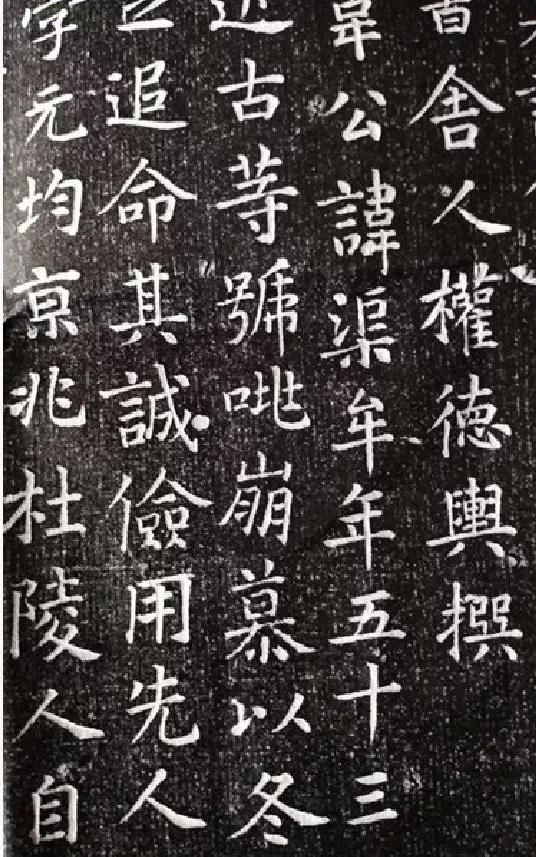 舍人權德輿撰
韋公諱渠牟年五十三
古等號咷崩慕以冬
追命其誠儉用先人
字元均京兆杜陵人自